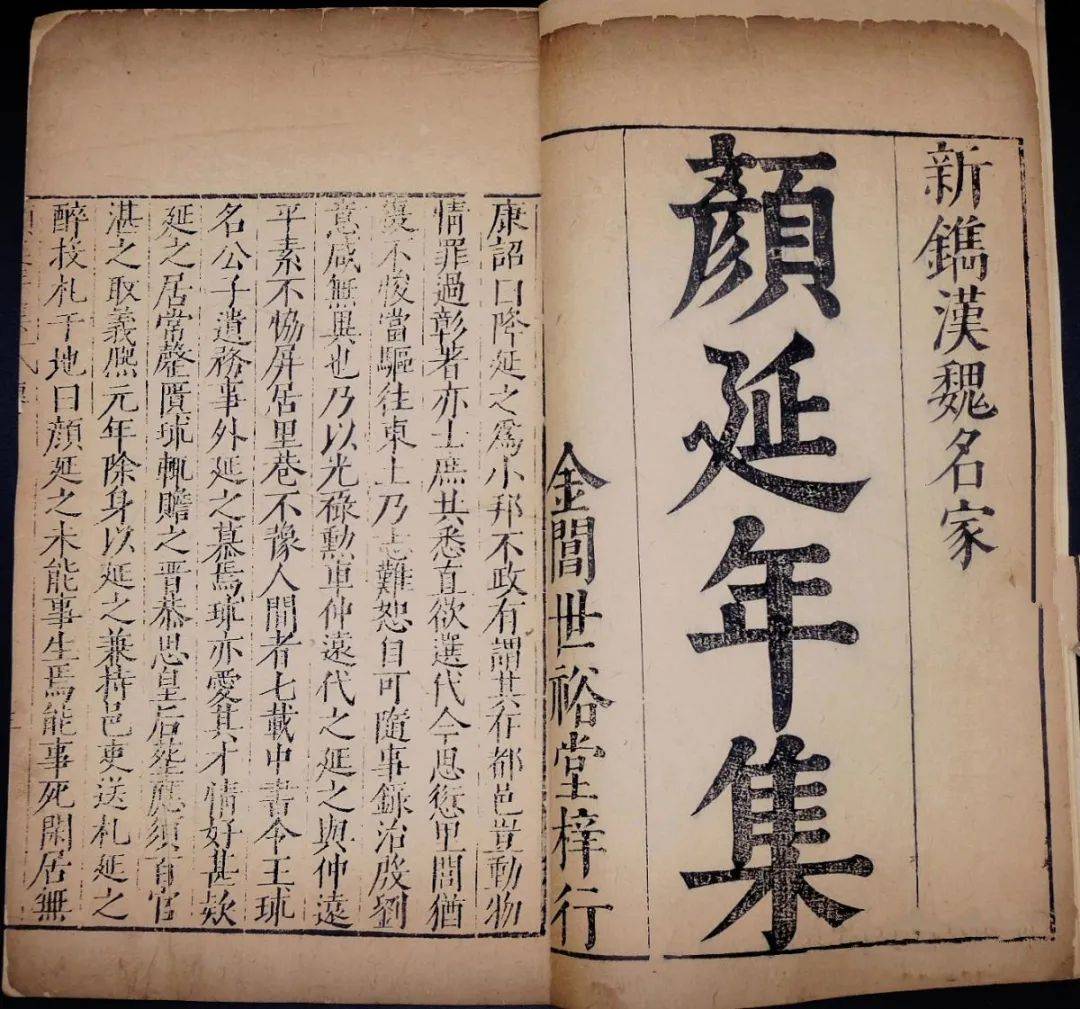 新鐫漢魏名家
顏延年集
金閶世裕堂梓行
康詔曰降延之爲小邦不政有謂其在都邑豈動物
情罪過彰著亦士庶共悉直欲選代令思愆里閭猶
復不悛當驅往東土乃志難恕自可隨事録治殷劉
意咸無異也乃以光祿勳車仲遠代之延之與仲遠
平素不恊屏居里巷不豫人間者七載中書令王球
名公子遺務事外延之慕焉球亦愛其才情好甚欵
延之居常罄匱球輒贍之晉恭思皇后塟應須百官
湛之取義熙元年除身以延之兼持邑吏送札延之
醉投札于地曰顔延之未能事生焉能事死閑居無